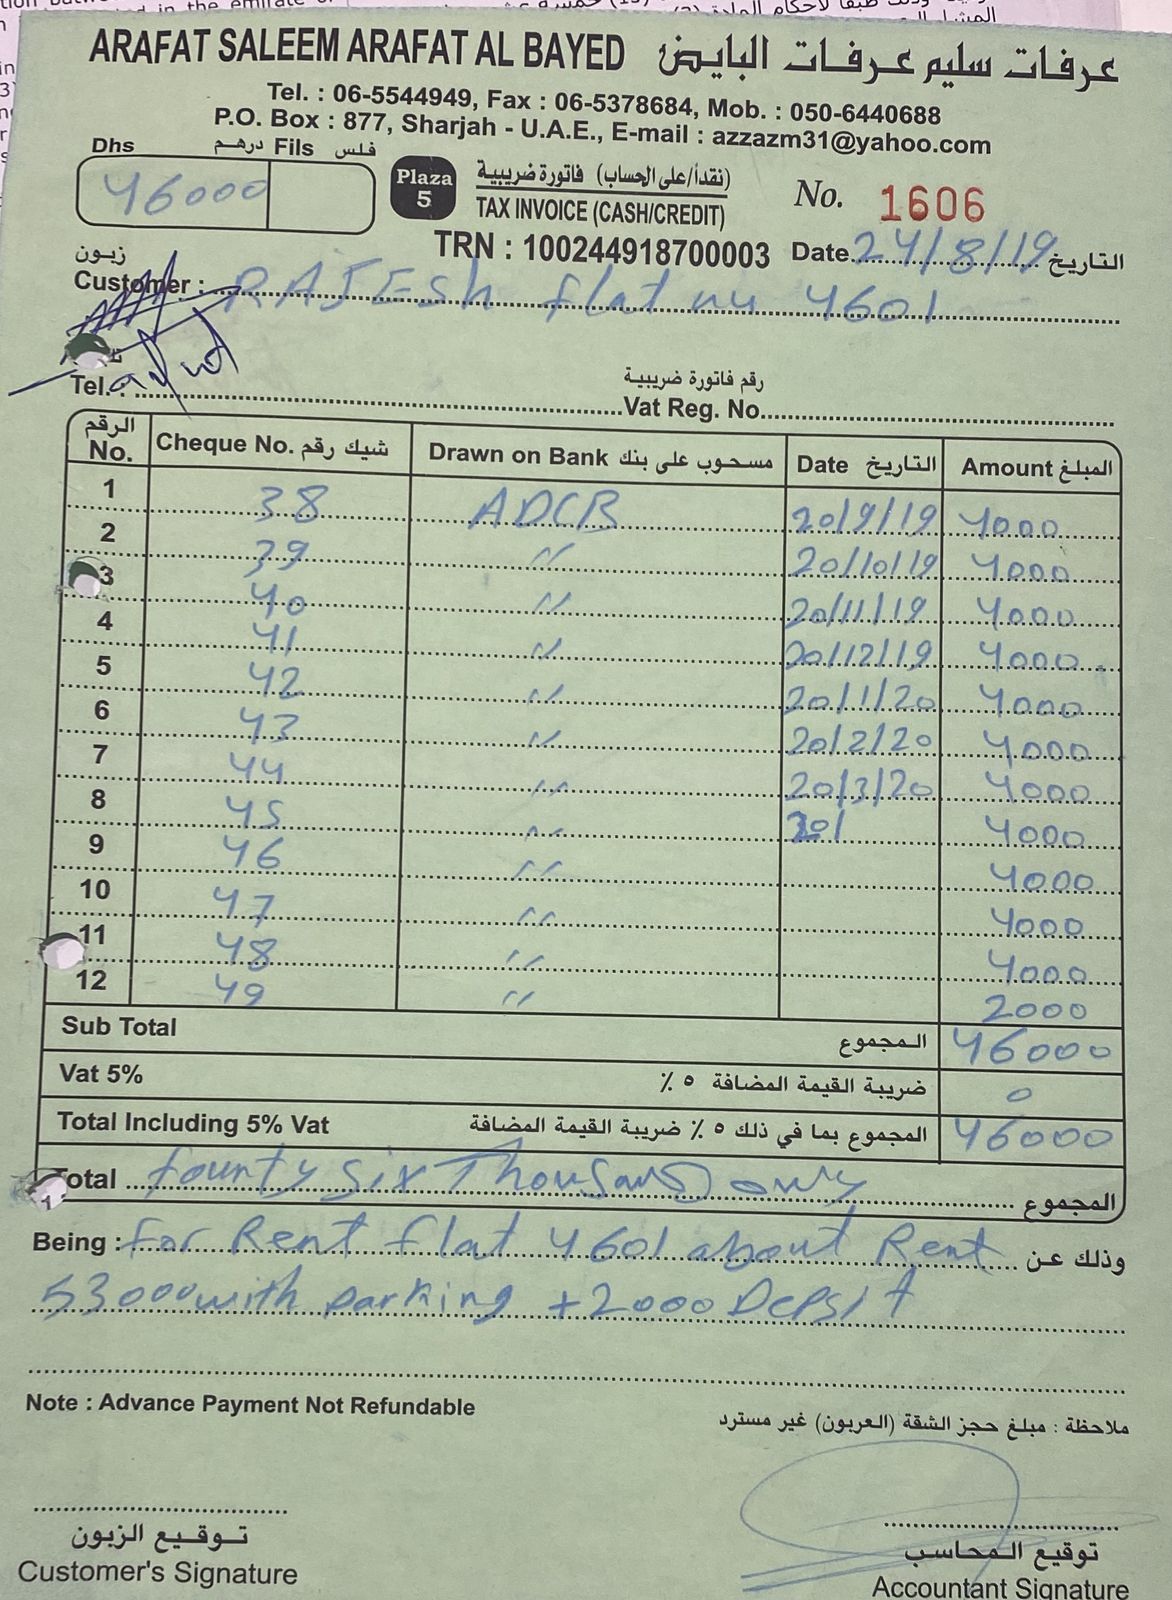 ARAFAT SALEEM ARAFAT AL BAYED عرفات سليم عرفات البايض
Tel. : 06-5544949, Fax : 06-5378684, Mob. : 050-6440688
P.O. Box : 877, Sharjah - U.A.E., E-mail : azzazm31@yahoo.com
Dhs درهم Fils فلس
46000
Plaza 5
(نقداً/على الحساب) فاتورة ضريبية
TAX INVOICE (CASH/CREDIT)
No. 1606
TRN : 100244918700003 Date 24/8/19 التاريخ
زبون
Customer : RAJESh flat nu 4601
Tel. :
رقم فاتورة ضريبية
Vat Reg. No.
الرقم No. Cheque No. شيك رقم Drawn on Bank مسحوب على بنك Date التاريخ Amount المبلغ
1 38 ADCB 20/9/19 4000
2 39 〃 20/10/19 4000
3 40 〃 20/11/19 4000
4 41 〃 20/12/19 4000
5 42 〃 20/1/20 4000
6 43 〃 20/2/20 4000
7 44 〃 20/3/20 4000
8 45 〃 20/ 4000
9 46 〃 4000
10 47 〃 4000
11 48 〃 4000
12 49 〃 2000
Sub Total المجموع 46000
Vat 5% ضريبة القيمة المضافة ٥ ٪ 0
Total Including 5% Vat المجموع بما في ذلك ٥ ٪ ضريبة القيمة المضافة 46000
Total founty six Thousand only المجموع
Being : for Rent flat 4601 about Rent وذلك عن
53000 with parking + 2000 Depsit
Note : Advance Payment Not Refundable
ملاحظة : مبلغ حجز الشقة (العربون) غير مسترد
توقيع الزبون
Customer's Signature
توقيع المحاسب
Accountant Signature